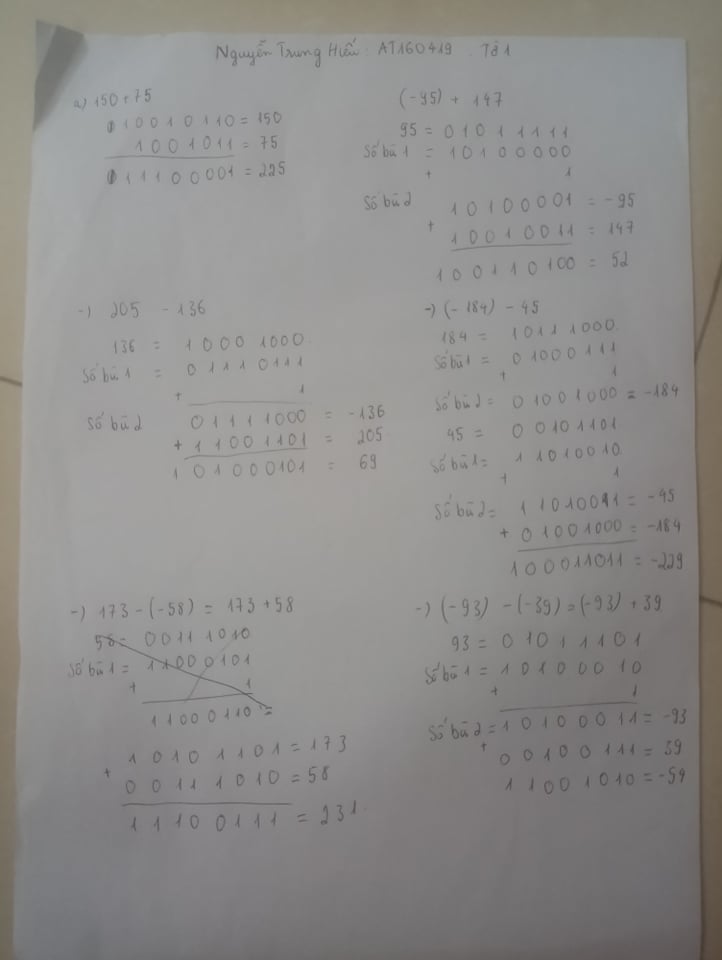 Nguyễn Trung Hiếu. AT160419. Tổ 1
a) 150 + 75
10010110 = 150
1001011 = 75
11100001 = 225
(-95) + 147
95 = 01011111
Số bù 1 = 10100000
+ 1
Số bù 2 10100001 = -95
+ 10010011 = 147
100110100 = 52
-) 205 - 136
136 = 10001000
Số bù 1 = 01110111
+ 1
Số bù 2 01111000 = -136
+ 11001101 = 205
101000101 = 69
-) (-184) - 45
184 = 10111000
Số bù 1 = 01000111
+ 1
Số bù 2 = 01001000 = -184
45 = 00101101
Số bù 1 = 11010010
+ 1
Số bù 2 = 11010011 = -45
+ 01001000 = -184
100011011 = -229
-) 173 - (-58) = 173 + 58
58 = 00111010
Số bù 1 = 11000101
+ 1
11000110 =
10101101 = 173
+ 00111010 = 58
11100111 = 231.
-) (-93) - (-39) = (-93) + 39
93 = 01011101
Số bù 1 = 10100010
+ 1
Số bù 2 = 10100011 = -93
+ 00100111 = 39
11001010 = -54